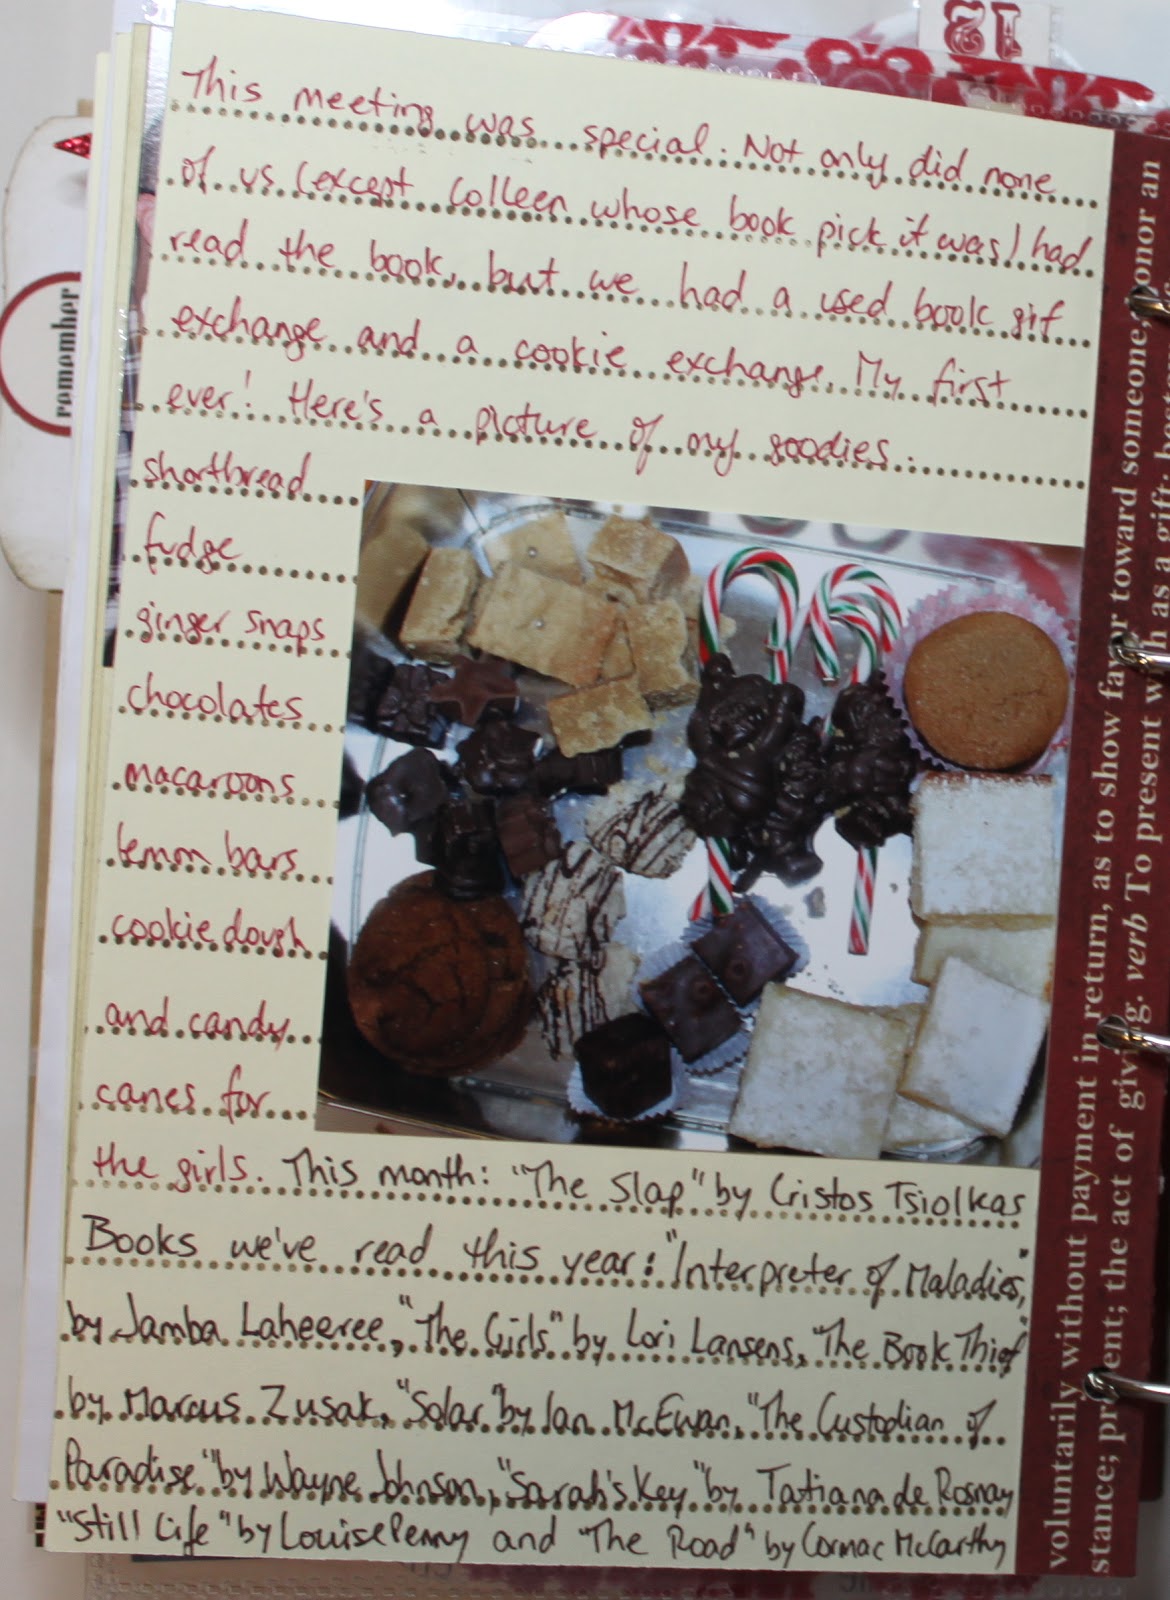 12
This meeting was special. Not only did none
of us (except Colleen whose book pick it was) had
read the book, but we had a used book gift
exchange and a cookie exchange. My first
ever! Here's a picture of my goodies.
shortbread
fudge
ginger snaps
chocolates
macaroons
lemon bars
cookie dough
and candy
canes for
the girls. This month: "The Slap" by Cristos Tsiolkas
Books we've read this year: "Interpreter of Maladies,"
by Jamba Laheeree, "The Girls" by Lori Lansens, "The Book Thief"
by Marcus Zusak, "Solar" by Ian McEwan, "The Custodian of
Paradise" by Wayne Johnson, "Sarah's Key" by Tatiana de Rosnay
"Still Life" by Louise Penny and "The Road" by Cormac McCarthy
remember
voluntarily without payment in return, as to show favor toward someone, honor an
stance; present; the act of giving. verb To present with as a gift;